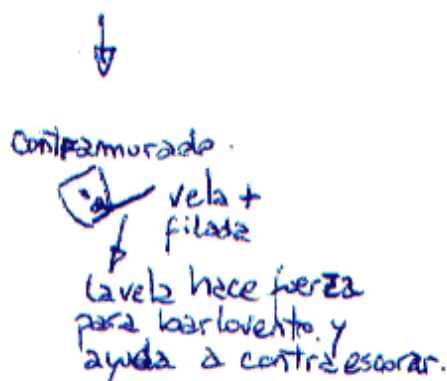 contramurado.
vela +
filada
la vela hace fuerza
para barlovento. y
ayuda a contraescorar.